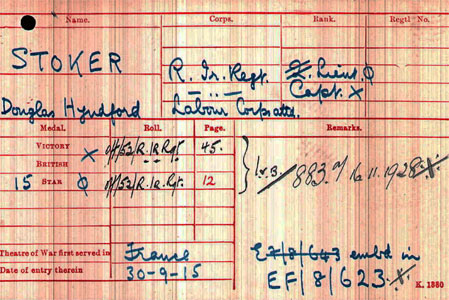 Name. Corps. Rank. Regtl No.
STOKER R. Ir. Regt. 2. Lieut. φ
Capt. X
Douglas Hyndford Labour Corps attd.
Medal. Roll. Page. Remarks.
VICTORY X off/53/R.IR.Rgt. 45.
BRITISH
15 STAR φ off/53/R.Ir.Rgt. 12 I.V.B. 883. of 16.11.1928. X.
Theatre of War first served in France
Date of entry therein 30-9-15
EF/8/643 embd in
EF/8/623. X.
K. 1380